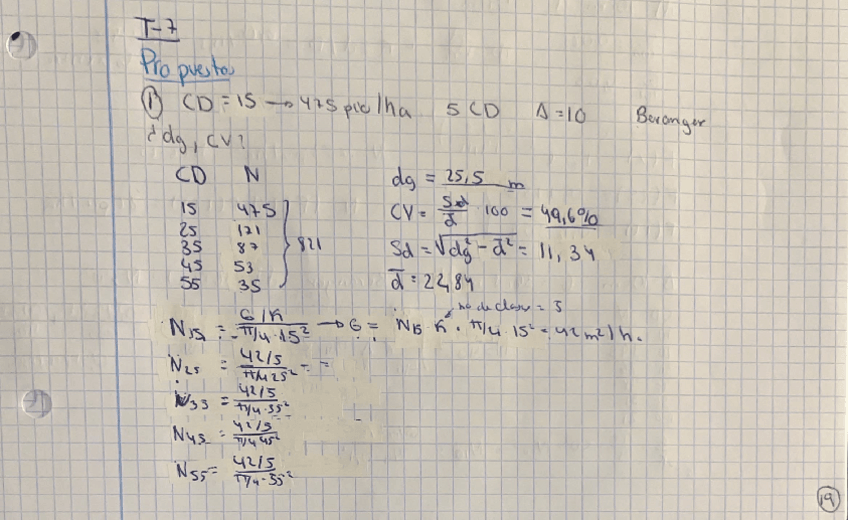 T-7
Propuestos
① CD = 15 → 475 pie/ha 5 CD Δ = 10 Beranger
¿dg, CV?
CD N
15 475
25 171
35 87
45 53
55 35
} 821
dg = 25,5 m
CV = Sd/d̄ · 100 = 49,6%
Sd = √dg² - d̄² = 11,34
d̄ = 22,84
nº de clases = 5
N₁₅ = G/K / π/4·15² → G = N₁₅ · K · π/4 · 15² = 42 m²/h.
N₂₅ = 42/5 / π/4 25² = =
N₃₅ = 42/5 / π/4·35²
N₄₅ = 42/5 / π/4 45²
N₅₅ = 42/5 / π/4·55²
19